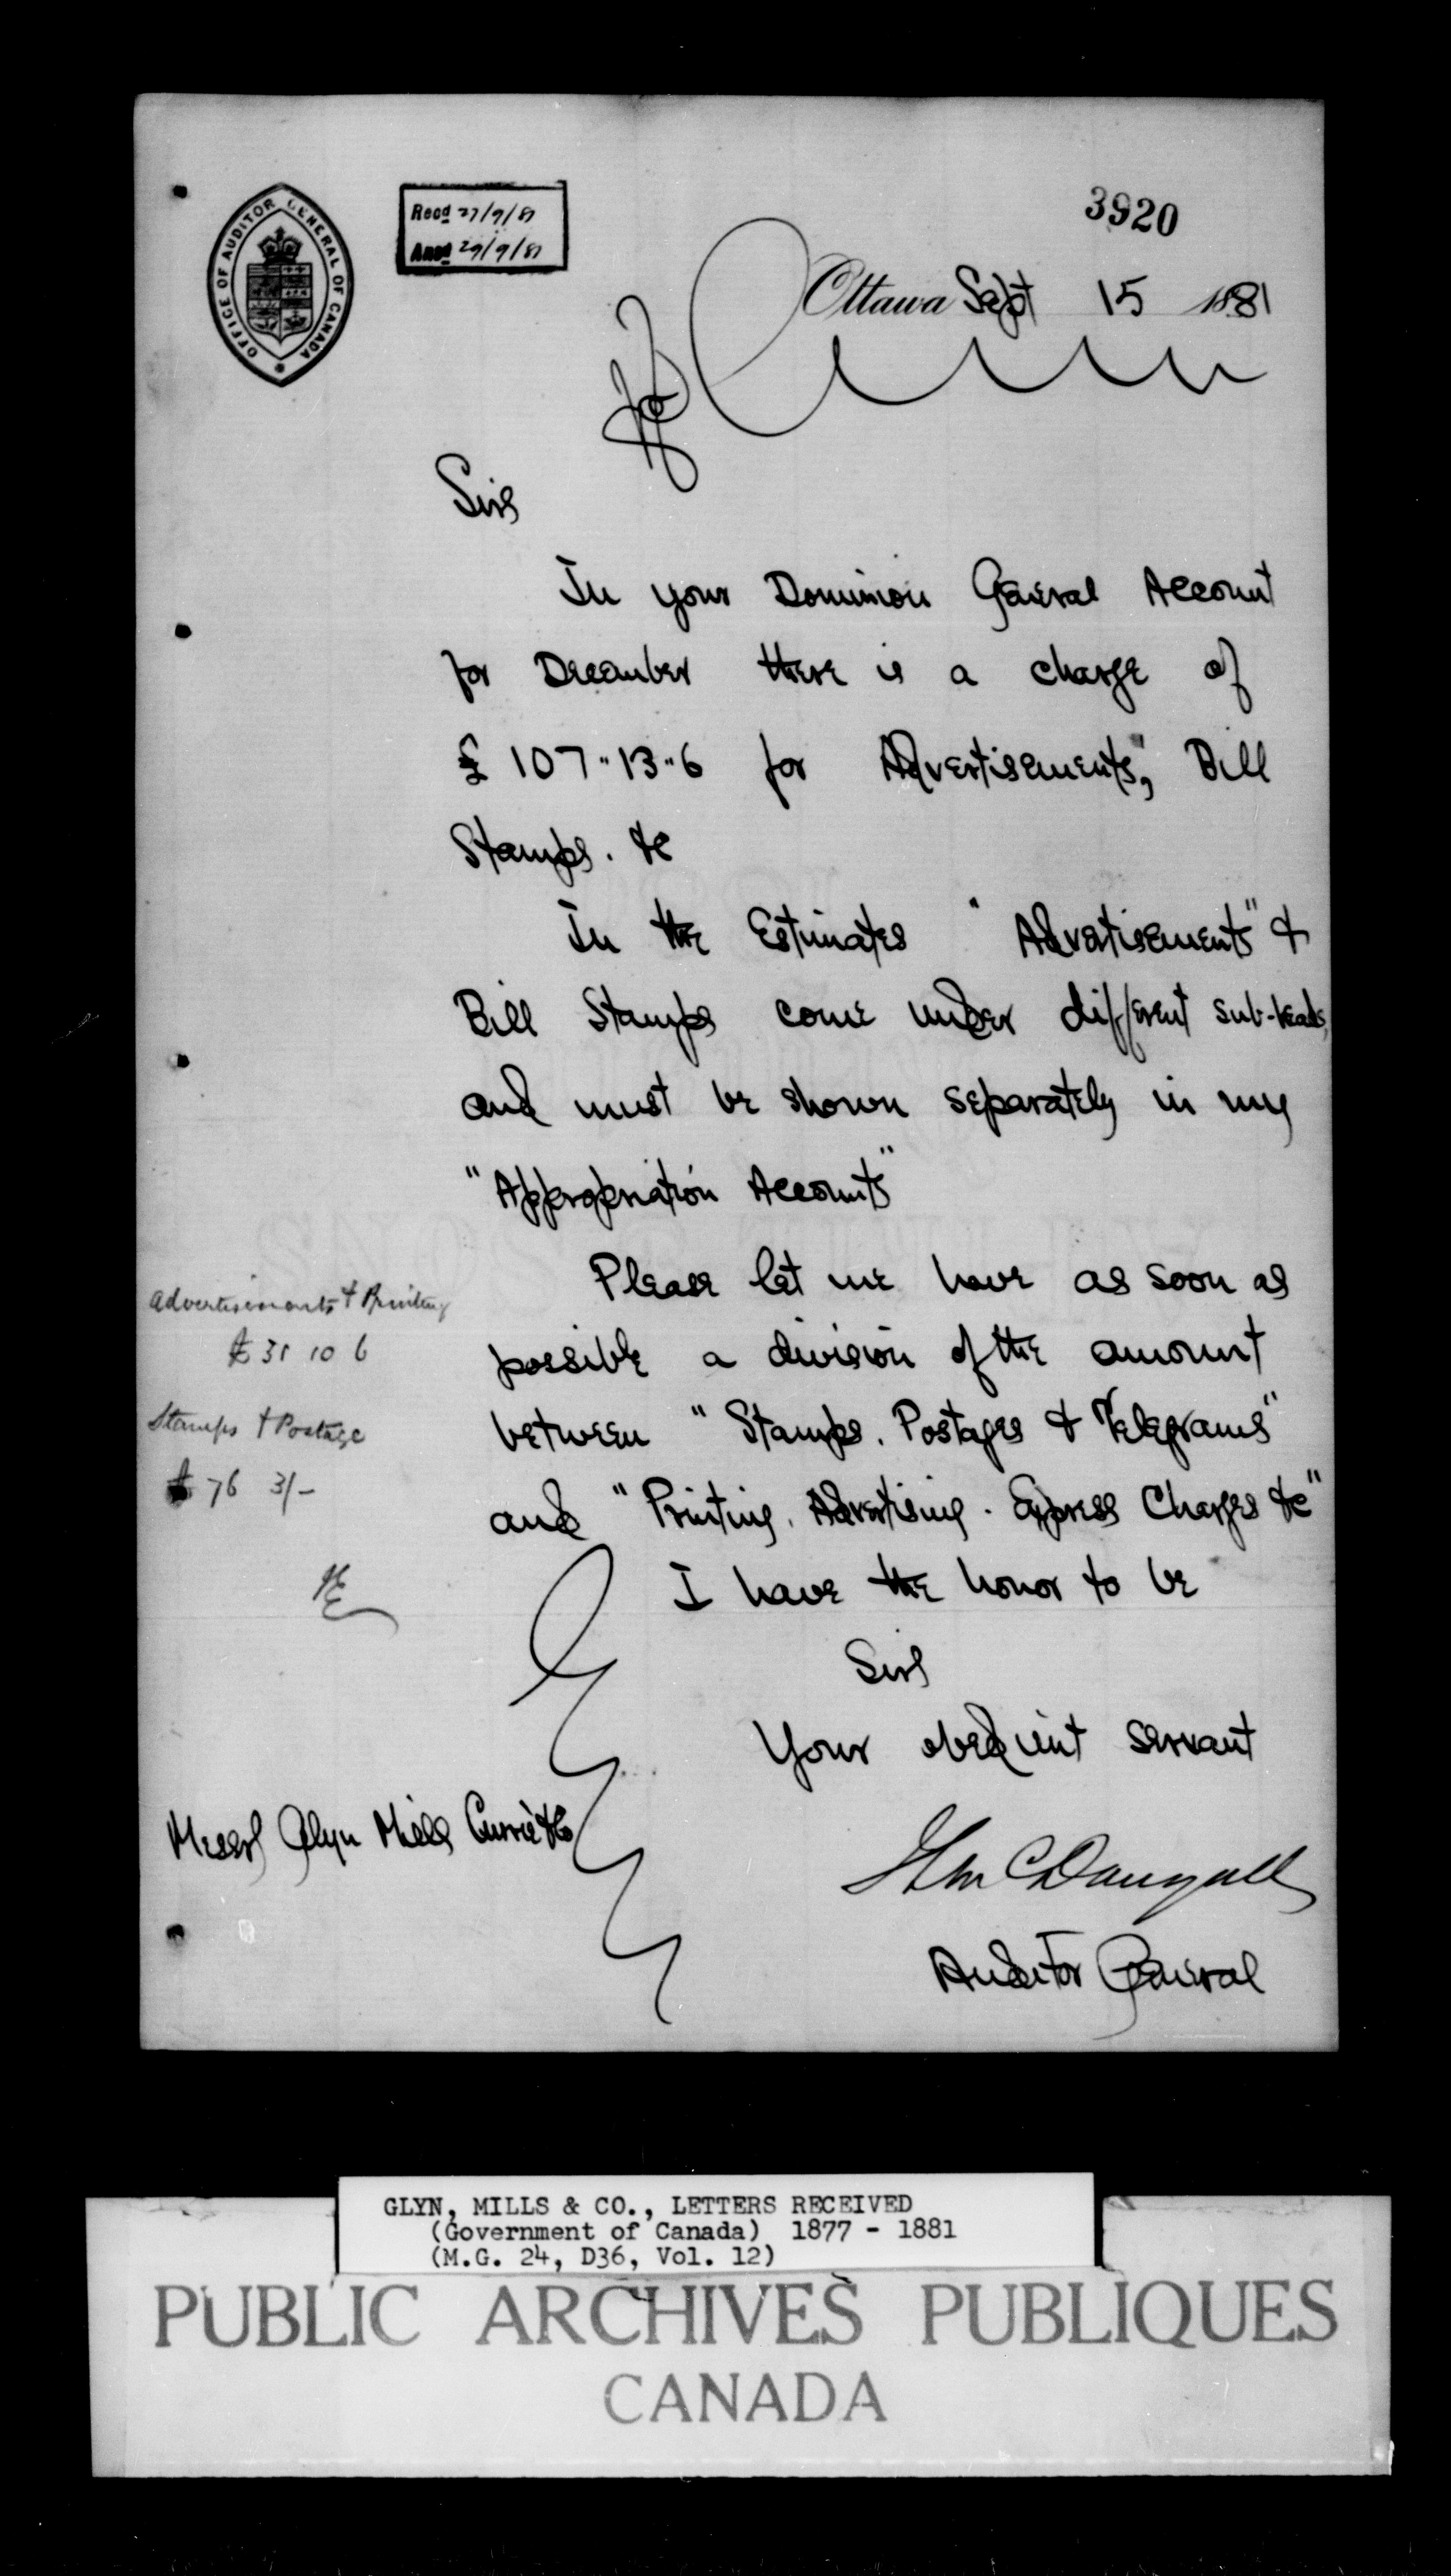 OFFICE OF AUDITOR GENERAL OF CANADA
Recd 27/9/81
Ansd 29/9/81
3920
Ottawa Sept 15 1881
Sirs
In your Dominion General Account
for December there is a charge of
£ 107"13"6 for Advertisements", Bill
Stamps. &c
In the Estimates "Advertisements" &
Bill Stamps come under different sub-heads,
and must be shown separately in my
"Appropriation Accounts"
Please let me have as soon as
possible a division of the amount
between "Stamps. Postages & Telegrams"
and "Printing. Advertising. Express Charges &c"
I have the honor to be
Sirs
Your obedient servant
J L McDougall
Auditor General
Messrs Glyn Mills Currie & Co
Advertisements & Printing
£ 31 10 6
Stamps & Postage
£ 76 3/-
GLYN, MILLS & CO., LETTERS RECEIVED
(Government of Canada) 1877 - 1881
(M.G. 24, D36, Vol. 12)
PUBLIC ARCHIVES PUBLIQUES
CANADA